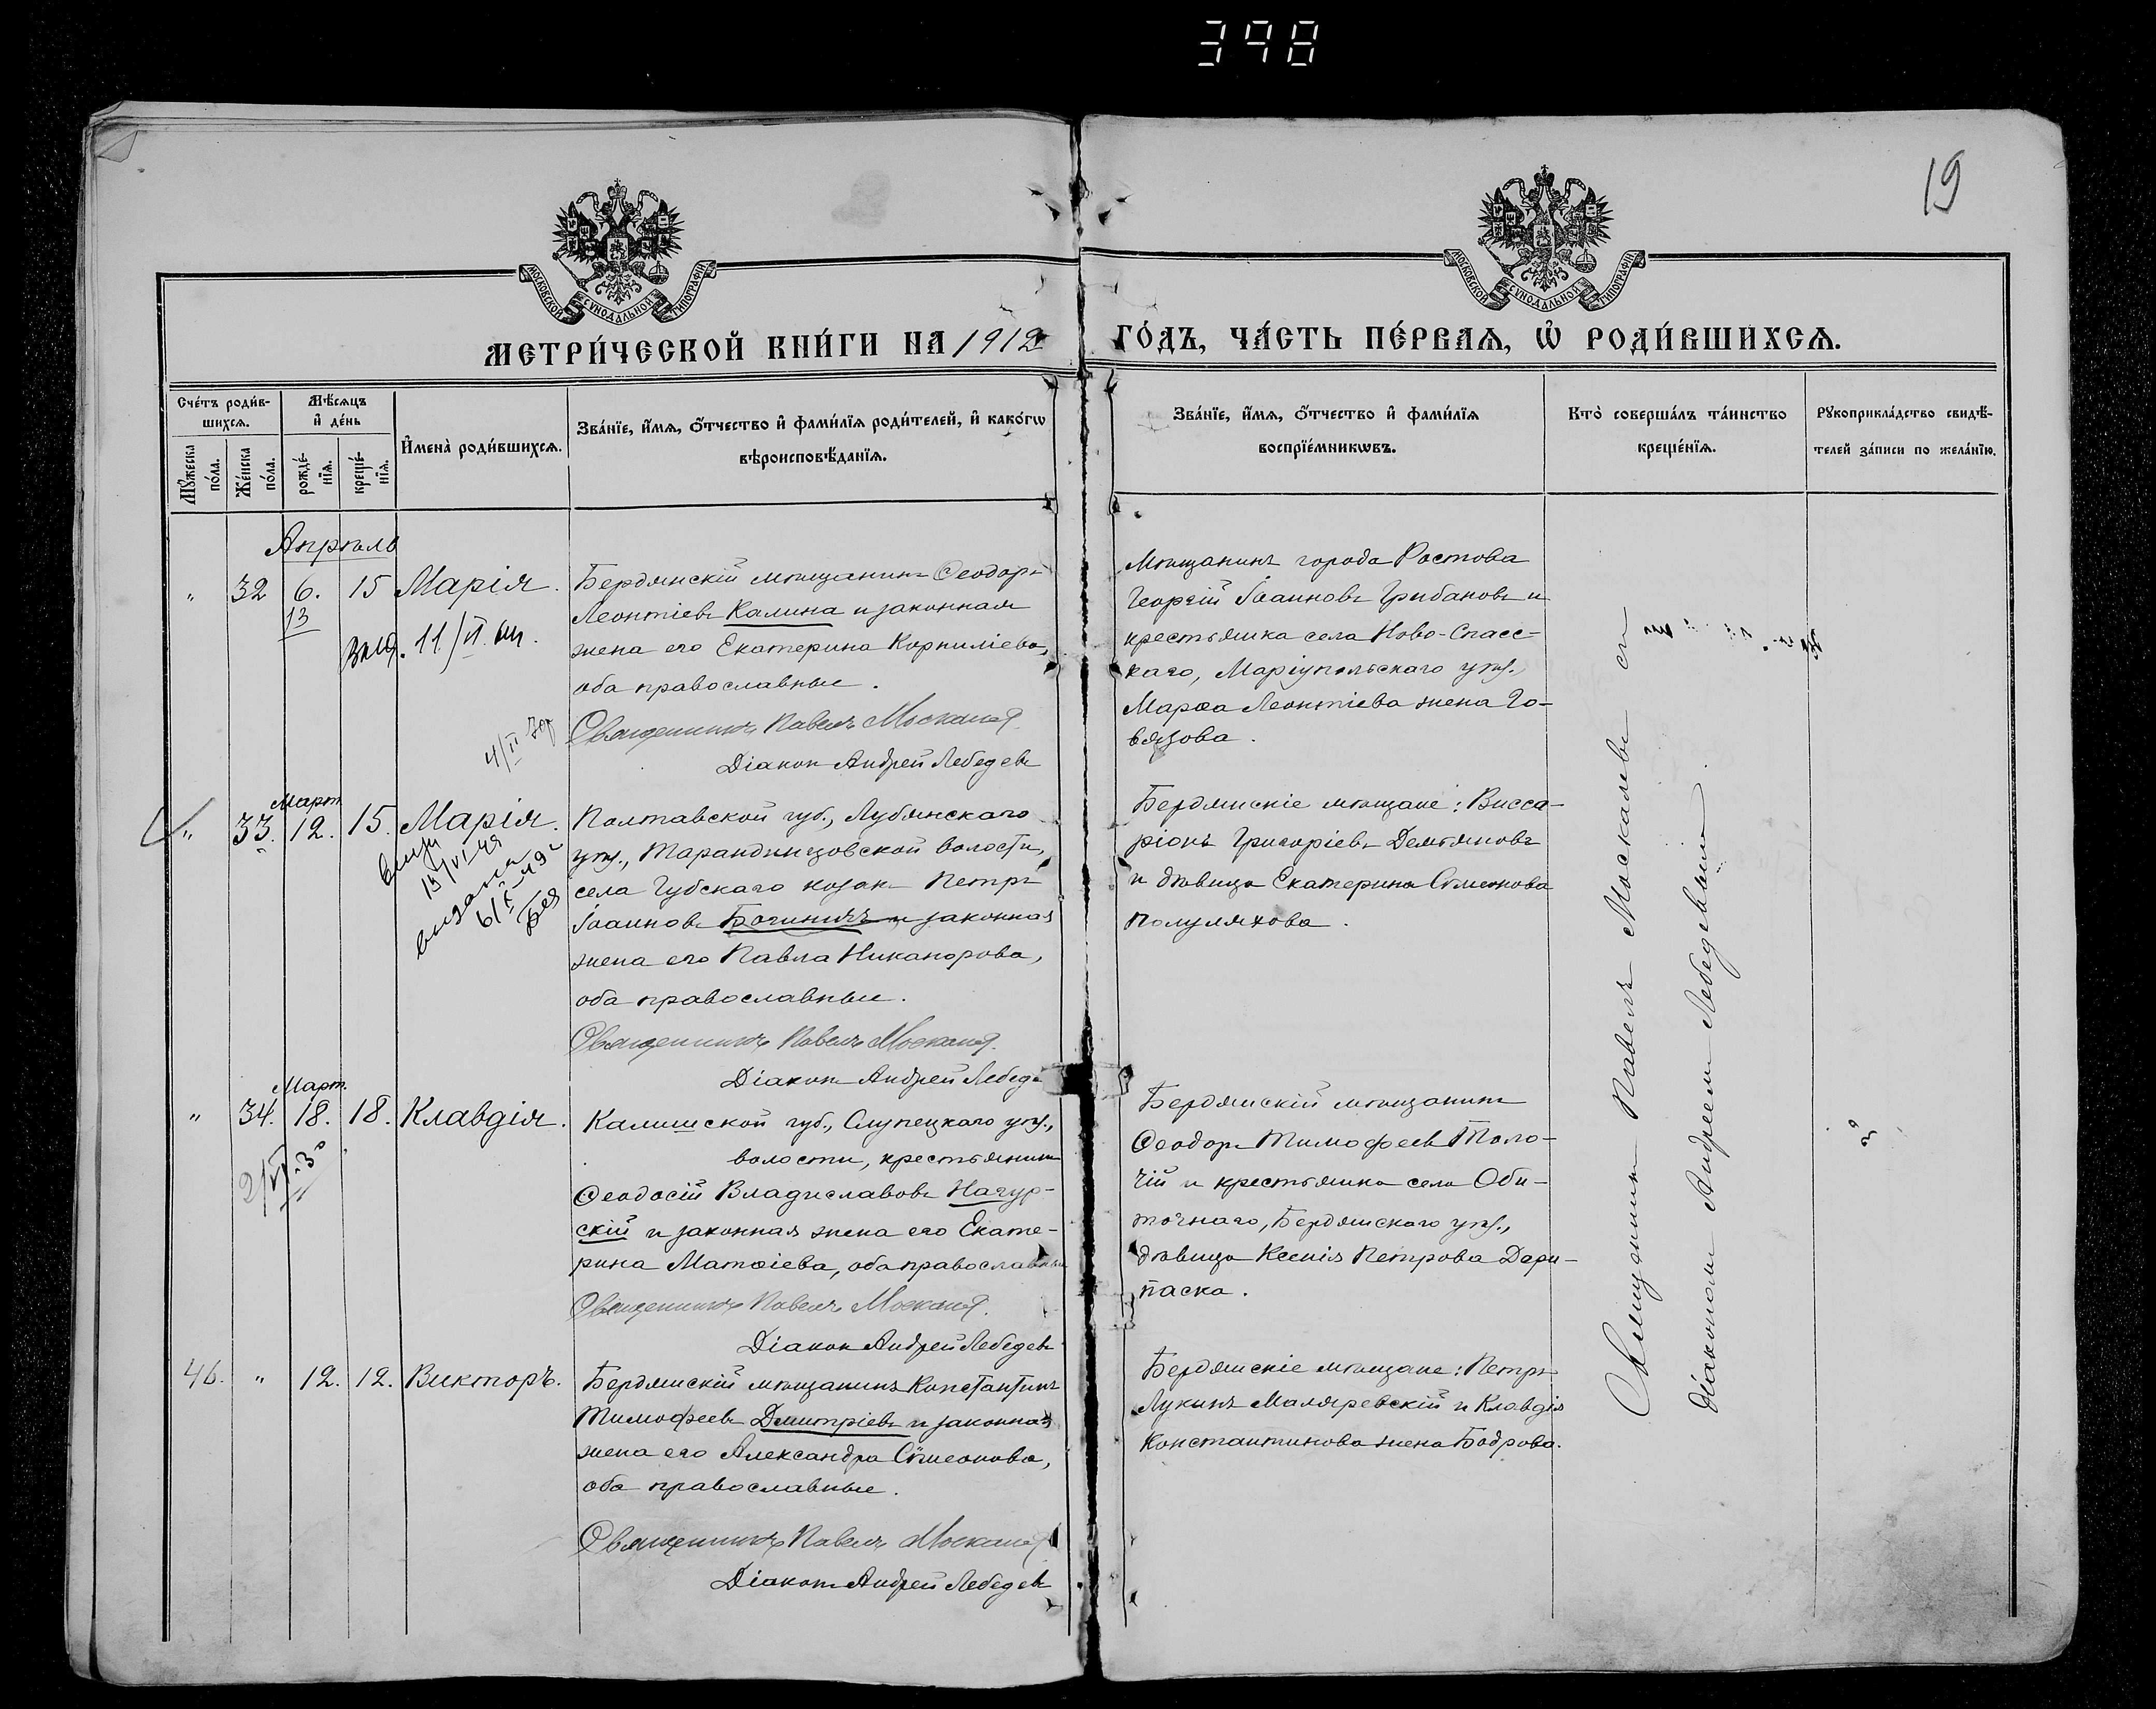 398
19
МОСКОВСКОЙ СУНОДАЛЬНОЙ ТИПОГРАФІИ
МОСКОВСКОЙ СУНОДАЛЬНОЙ ТИПОГРАФІИ
МЕТРИ́ЧЕСКОЙ КНИ́ГИ НА 1912
ГО́ДЪ, ЧА́СТЬ ПЕ́РВАѦ, Ѡ҆ РОДИ́ВШИХСѦ.
Сче́тъ роди́в-
шихсѧ.
Мѣ́сѧцъ
и҆ де́нь
Мꙋжеска
по́ла.
Же́нска
по́ла.
рожде́-
нїѧ.
креще́-
нїѧ.
И҆мена̀ роди́вшихсѧ.
Зва́нїе, и҆́мѧ, ѻ҆́тчество и҆ фами́лїѧ роди́телей, и҆ како́гѡ
вѣроисповѣ́данїѧ.
Зва́нїе, и҆́мѧ, ѻ҆́тчество и҆ фами́лїѧ
воспрїе́мникѡвъ.
Кто̀ соверша́лъ та́инство
креще́нїѧ.
Рꙋкоприкла́дство свидѣ́-
телей за́писи по жела́нїю.
Апрѣль
" 32 6. 15 Марія.
13
11/II
Бердянскій мѣщанинъ Ѳеодоръ
Леонтіевъ Калина и законная
жена его Екатерина Корниліева,
оба православные.
Священникъ Павелъ Москалев
Діаконъ Андрей Лебедевъ
Мѣщанинъ города Ростова
Георгій Іоанновъ Грибановъ и
крестьянка села Ново-Спасс-
каго, Маріупольскаго уѣз.
Марѳа Леонтіева жена Го-
вязова.
4/II
Март.
" 33. 12. 15. Марія.
13/VI 49
выдана
6/X-49 г
Полтавской губ., Лубянскаго
уѣз., Тарандинцовской волости,
села Губскаго козак Петръ
Іоанновъ Богиничъ и законная
жена его Павла Никанорова,
оба православные.
Священникъ Павелъ Москалев
Діаконъ Андрей Лебедев
Бердянскіе мѣщане: Висса-
ріонъ Григоріевъ Демьяновъ
и дѣвица Екатерина Сѵмеонова
Полуляхова.
Март.
" 34. 18. 18. Клавдія.
Калишской губ., Слупецкаго уѣз.,
волости, крестьянинъ
Ѳеодосій Владиславовъ Нагур-
скій и законная жена его Екате-
рина Матѳіева, оба православные
Священникъ Павелъ Москалев
Діаконъ Андрей Лебедевъ
Бердянскій мѣщанинъ
Ѳеодоръ Тимофеевъ Толо-
чій и крестьянка села Оби-
точнаго, Бердянскаго уѣз.,
дѣвица Ксенія Петрова Дери-
паска.
46. " 12. 12. Викторъ.
Бердянскій мѣщанинъ Константинъ
Тимофеевъ Дмитріевъ и законная
жена его Александра Сѵмеонова,
оба православные.
Священникъ Павелъ Москалев
Діаконъ Андрей Лебедевъ
Бердянскіе мѣщане: Петръ
Лукинъ Маляревскій и Клавдія
Константинова жена Бодрова.
Священникъ Павелъ Москалевъ съ
діакономъ Андреемъ Лебедевымъ.